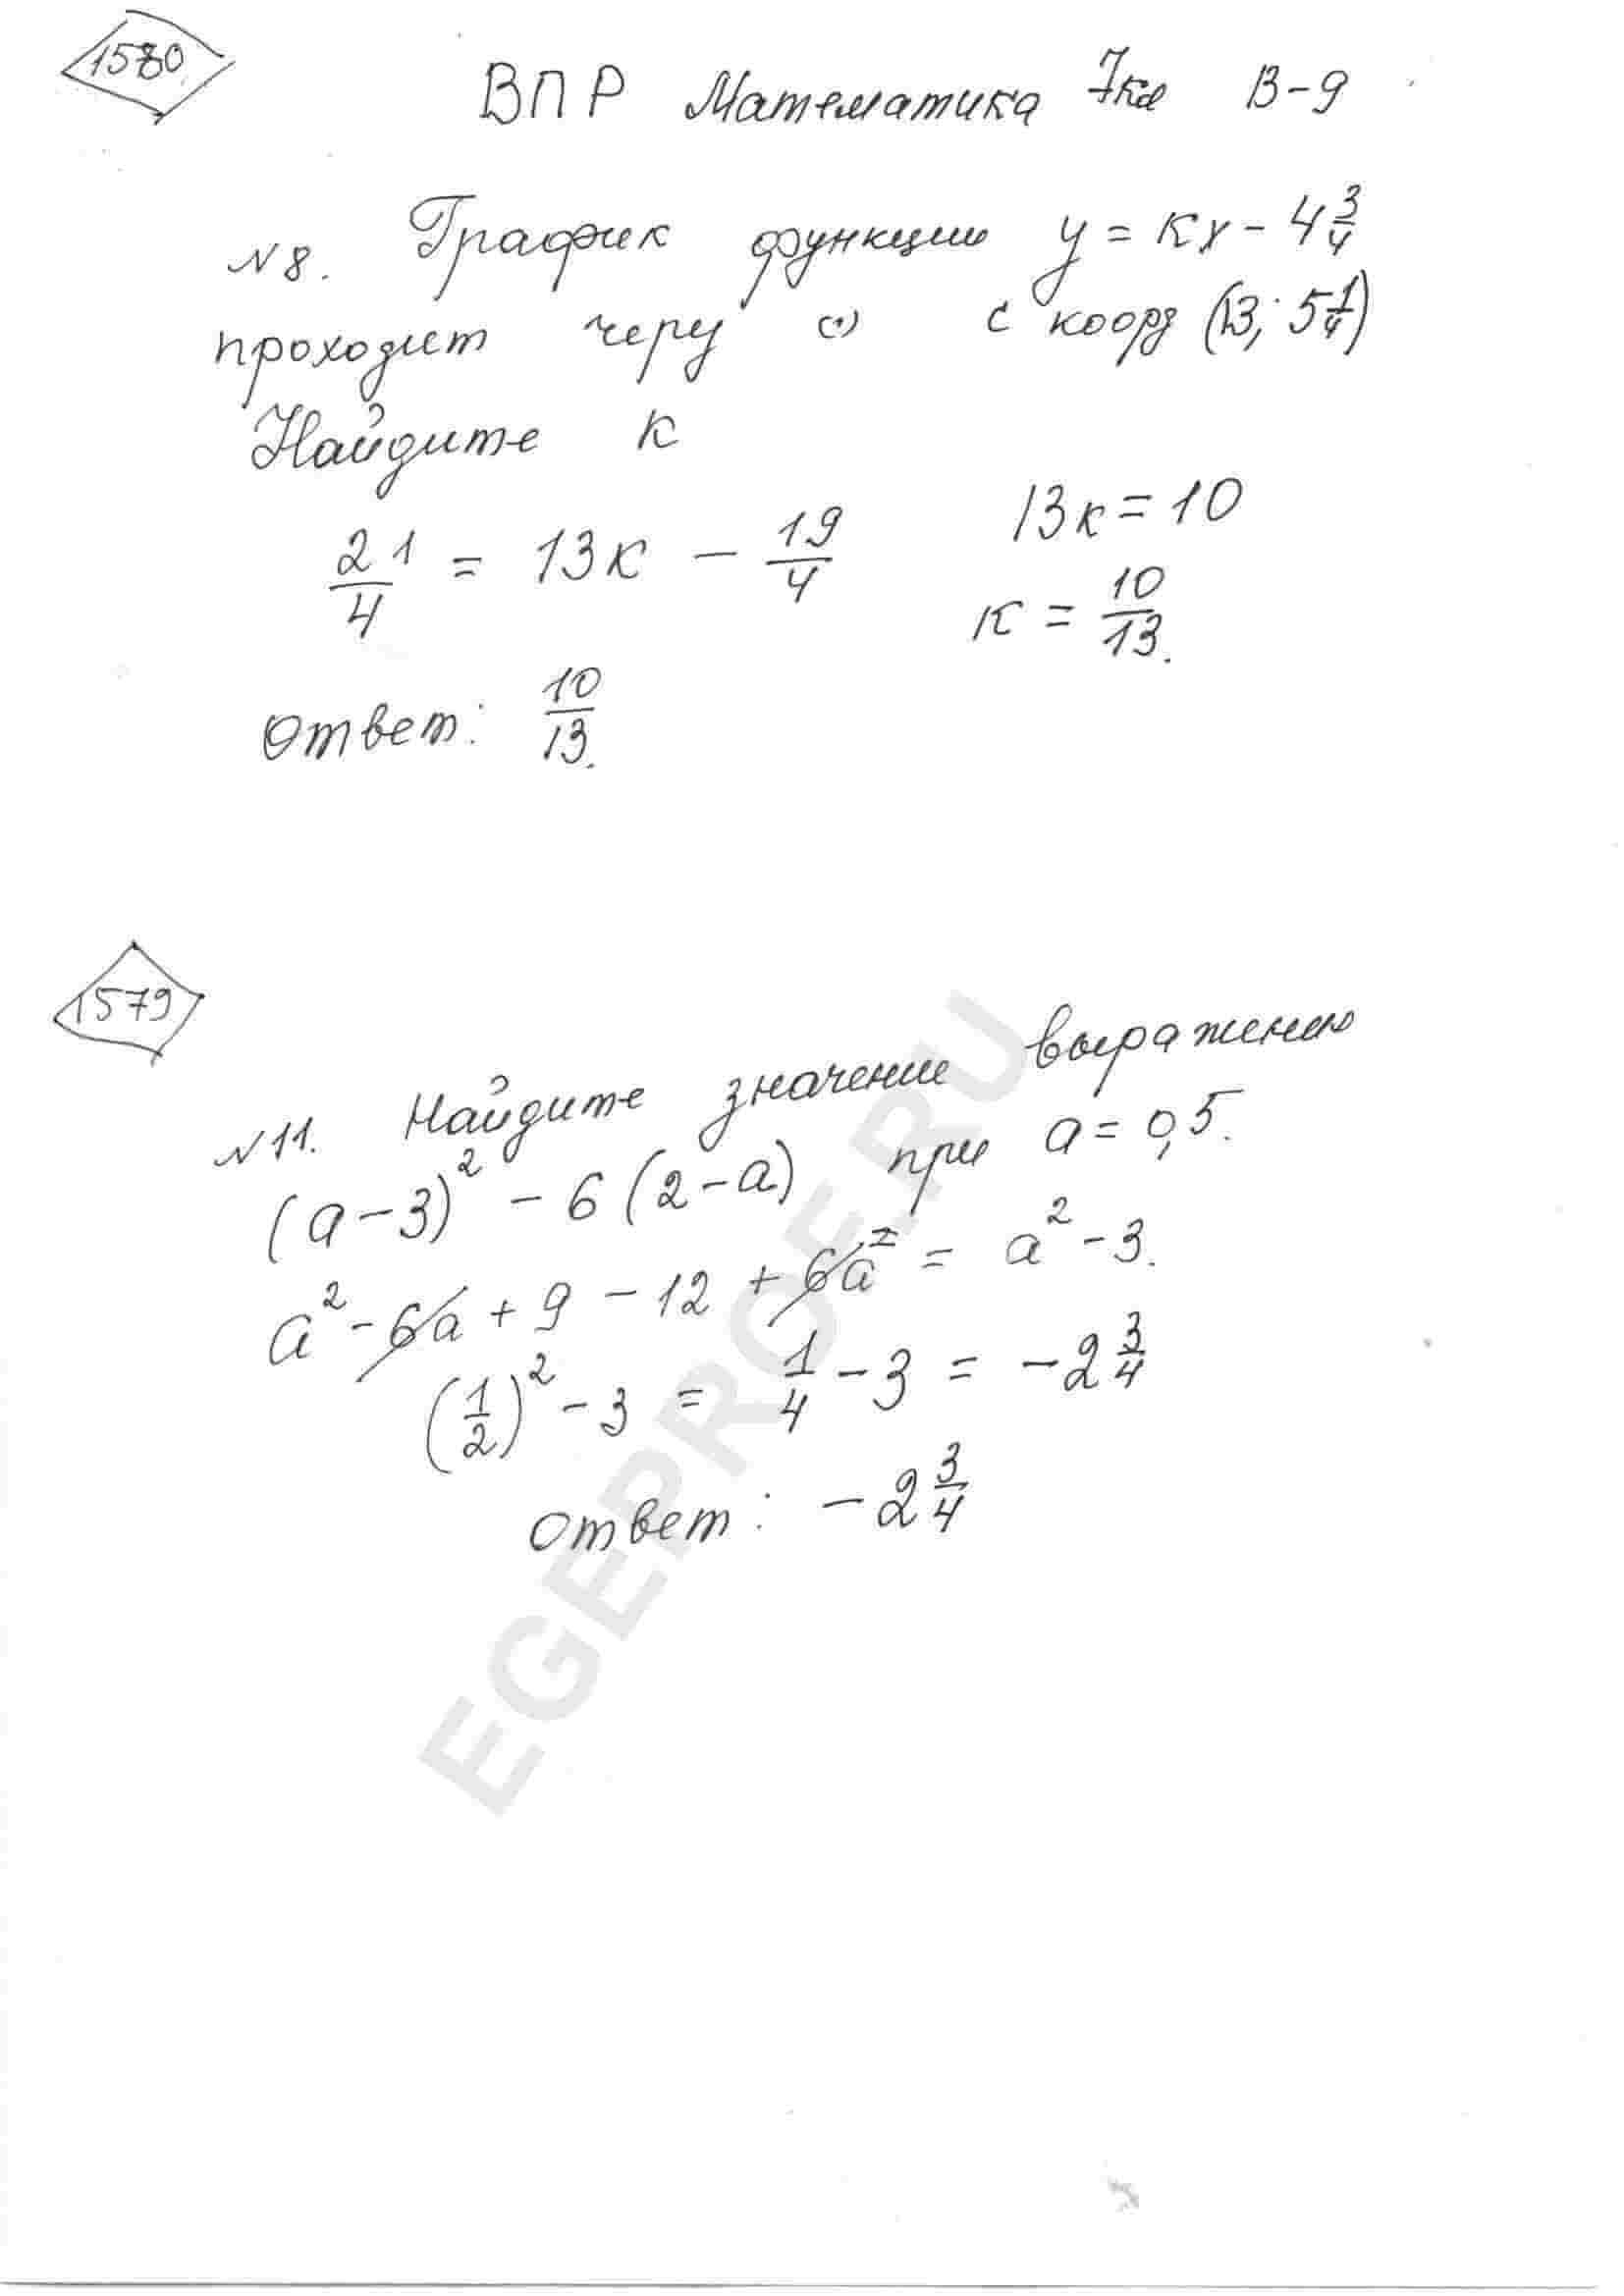 1580
ВПР Математика 7кл В-9
№8. График функции y = кx - 4 3/4
проходит через (·) с коорд (13; 5 1/4)
Найдите к
21/4 = 13к - 19/4
13к = 10
к = 10/13.
Ответ: 10/13.
1579
№11. Найдите значение выражения
(a-3)² - 6(2-a) при a = 0,5.
a² - 6a + 9 - 12 + 6a = a² - 3.
(1/2)² - 3 = 1/4 - 3 = -2 3/4
Ответ: -2 3/4
EGEPROF.RU